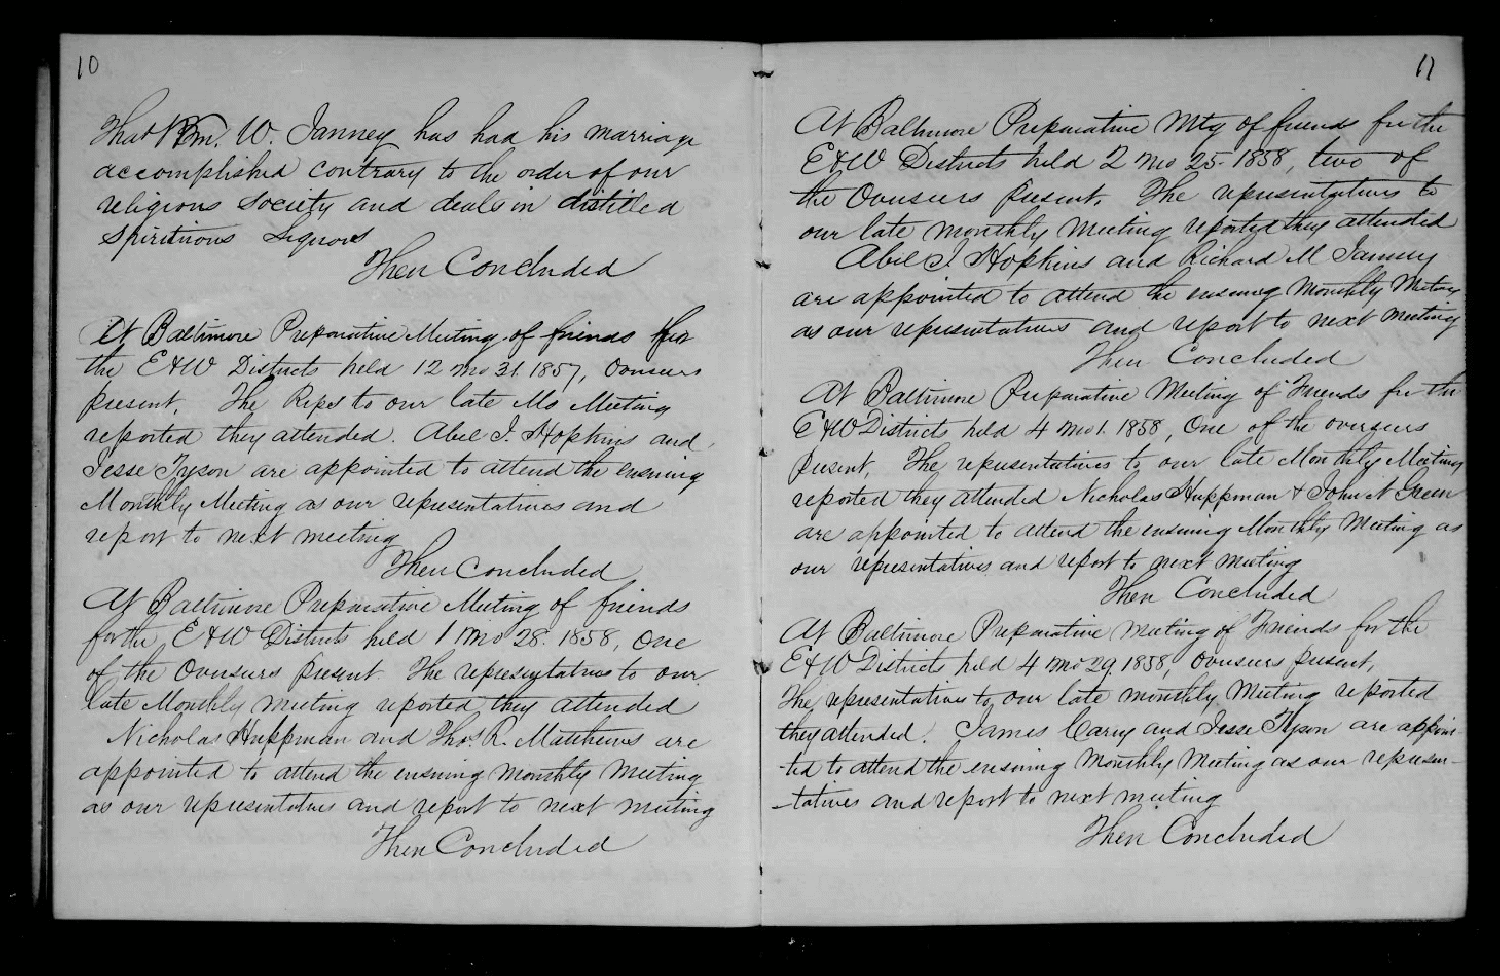 10
That Wm. W. Janney has had his marriage
accomplished contrary to the order of our
religious society and deals in distilled
spirituous Liquors
Then Concluded
At Baltimore Preparative Meeting of friends for
the E & W Districts held 12 mo 31. 1857, Overseers
present. The Reps to our late Mo Meeting
reported they attended. Abel J. Hopkins and
Jesse Tyson are appointed to attend the ensuing
Monthly Meeting as our representatives and
report to next meeting
Then Concluded
At Baltimore Preparative Meeting of friends
for the E & W Districts held 1 mo 28. 1858, One
of the Overseers present. The representatives to our
late Monthly meeting reported they attended
Nicholas Huppman and Thos. R. Matthews are
appointed to attend the ensuing monthly meeting
as our representatives and report to next meeting
Then Concluded
11
At Baltimore Preparative Mtg of friends for the
E & W Districts held 2 mo 25. 1858, two of
the Overseers present. The representatives to
our late monthly Meeting reported they attended
Abel J. Hopkins and Richard M Janney
are appointed to attend the ensuing Monthly Meeting
as our representatives and report to next meeting
Then Concluded
At Baltimore Preparative Meeting of Friends for the
E & W Districts held 4 mo 1. 1858, One of the overseers
present, The representatives to our late Monthly Meeting
reported they attended Nicholas Huppman & John N Green
are appointed to attend the ensuing Monthly Meeting as
our representatives and report to next meeting
Then Concluded
At Baltimore Preparative meeting of Friends for the
E & W Districts held 4 mo 29. 1858, overseers present,
The representatives to our late monthly Meeting reported
they attended. James Carey and Jesse Tyson are appoin-
-ted to attend the ensuing Monthly Meeting as our represen-
-tatives and report to next meeting
Then Concluded